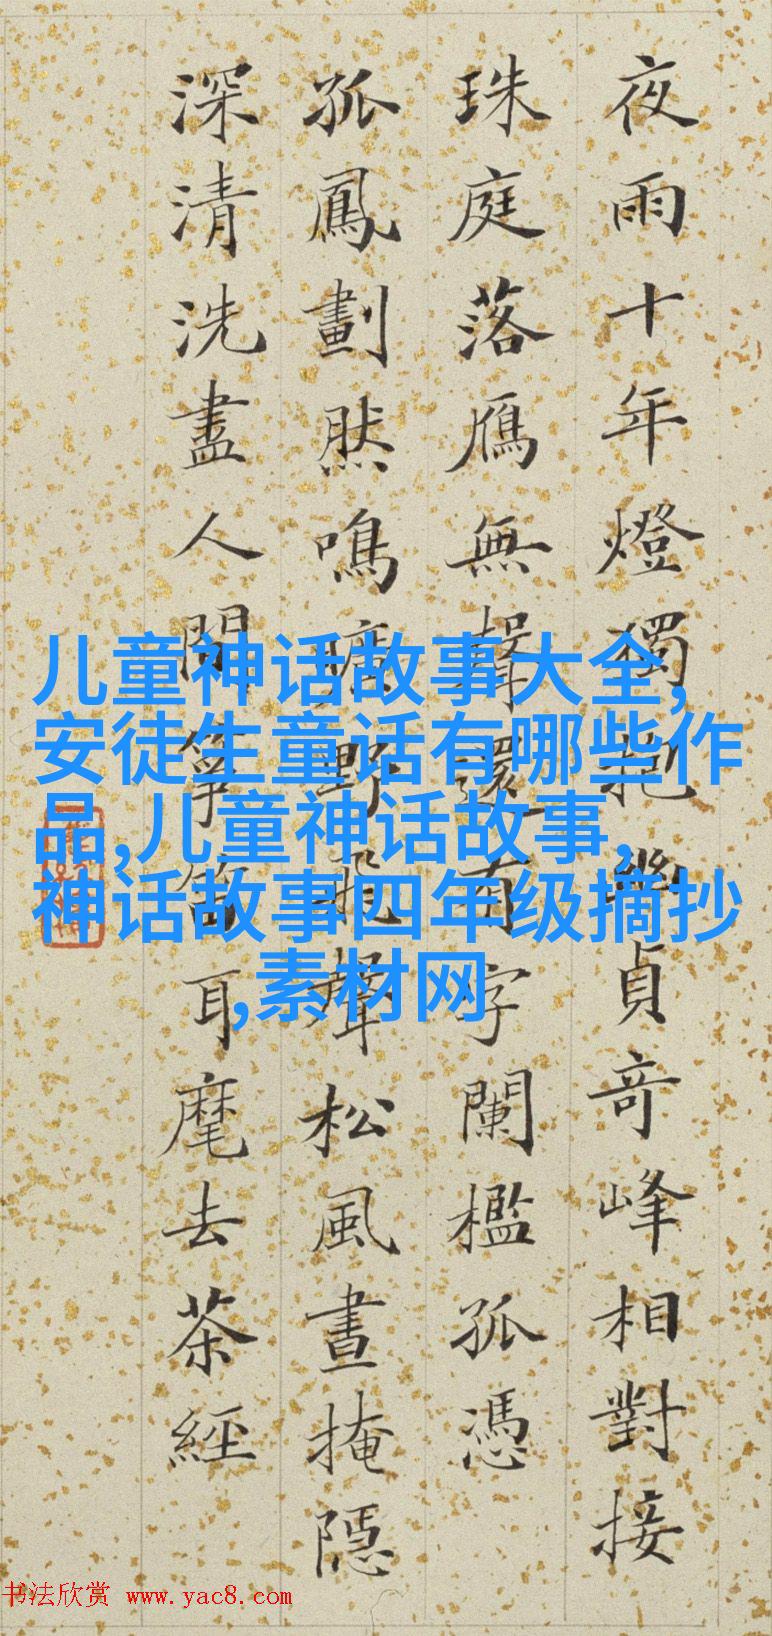 夜雨十年燈獨抱幾貞奇峰相對接
珠庭落鴈無聲還有字闌檻孤憑
孤鳳劃然鳴曠野飛聲松風晝掩隱
深清洗盡人間箏笛耳麾去茶經
儿童神话故事大全,
安徒生童话有哪些作
品,儿童神话故事,
神话故事四年级摘抄
,素材网
书法欣赏 www.yac8.com